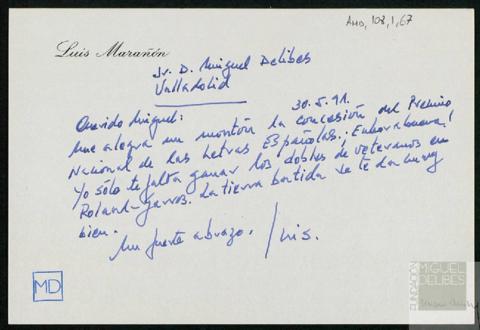 AMD, 108,1,67
Luis Marañón
Sr. D. Miguel Delibes
Valladolid
30.5.91.
Querido Miguel:
Me alegra un montón la concesión del Premio
Nacional de las Letras Españolas. ¡Enhorabuena!
Yo sólo te falta ganar los dobles de veteranos en
Roland-Garros. La tierra batida se te da muy
bien.
Un fuerte abrazo. Luis.
MD
FUNDACIÓN
MIGUEL
DELIBES